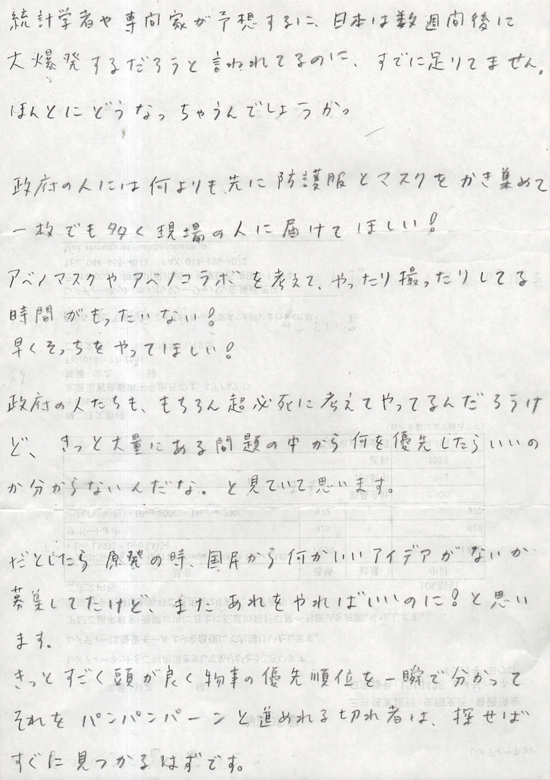 統計学者や専問家が予想するに、日本は数週間後に
大爆発するだろうと言われてるのに、すでに足りてません。
ほんとにどうなっちゃうんでしょうかっ
政府の人には何よりも先に防護服とマスクをかき集めて
一枚でも多く現場の人に届けてほしい!
アベノマスクやアベノコラボを考えて、やったり撮ったりしてる
時間がもったいない!
早くそっちをやってほしい!
政府の人たちも、もちろん超必死に考えてやってるんだろうけ
ど、きっと大量にある問題の中から何を優先したらいいの
か分からないんだな。と見ていて思います。
だとしたら原発の時、国民から何かいいアイデアがないか
募集してたけど、またあれをやればいいのに!と思い
ます。
きっとすごく頭が良く物事の優先順位を一瞬で分かって
それをパンパンパーンと進めれる切れ者は、探せば
すぐに見つかるはずです。